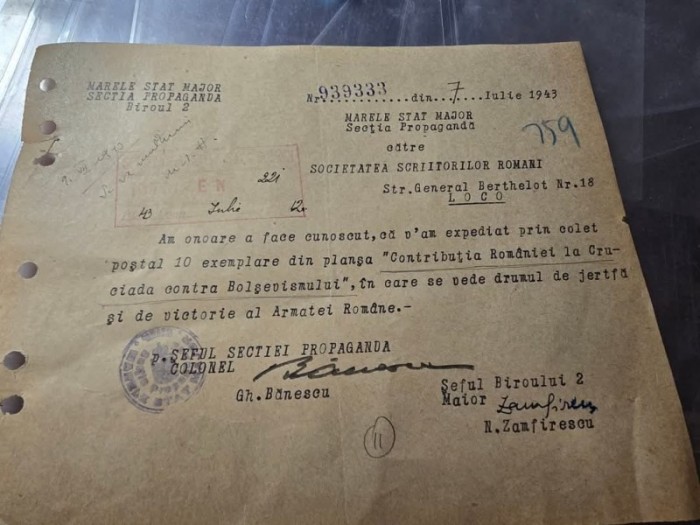 MARELE STAT MAJOR
SECTIA PROPAGANDA
Biroul 2
Nr. 939333 ............din...7.... Iulie 1943
MARELE STAT MAJOR
Secția Propagandă
către
759
SOCIETATEA SCRIITORILOR ROMANI
Str.General Berthelot Nr.18
LOCO
221
43 Iulie 12
Am onoare a face cunoscut, că v'am expediat prin colet
poștal 10 exemplare din planșa "Contribuția României la Cru-
ciada contra Bolșevismului", în care se vede drumul de jertfă
și de victorie al Armatei Române.-
p.ȘEFUL SECTIEI PROPAGANDA
COLONEL Bănescu
Gh.Bănescu
Șeful Biroului 2
Maior Zamfirescu
N.Zamfirescu
11